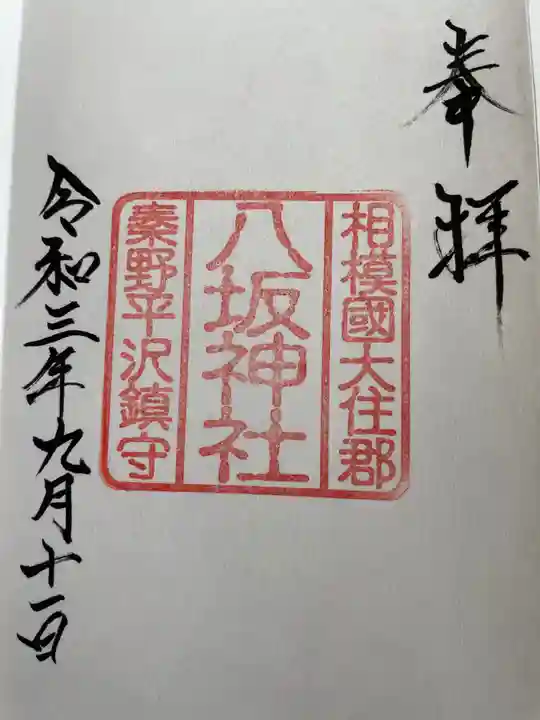 奉拝
相模國大住郡
八坂神社
秦野平沢鎮守
令和三年九月十一日